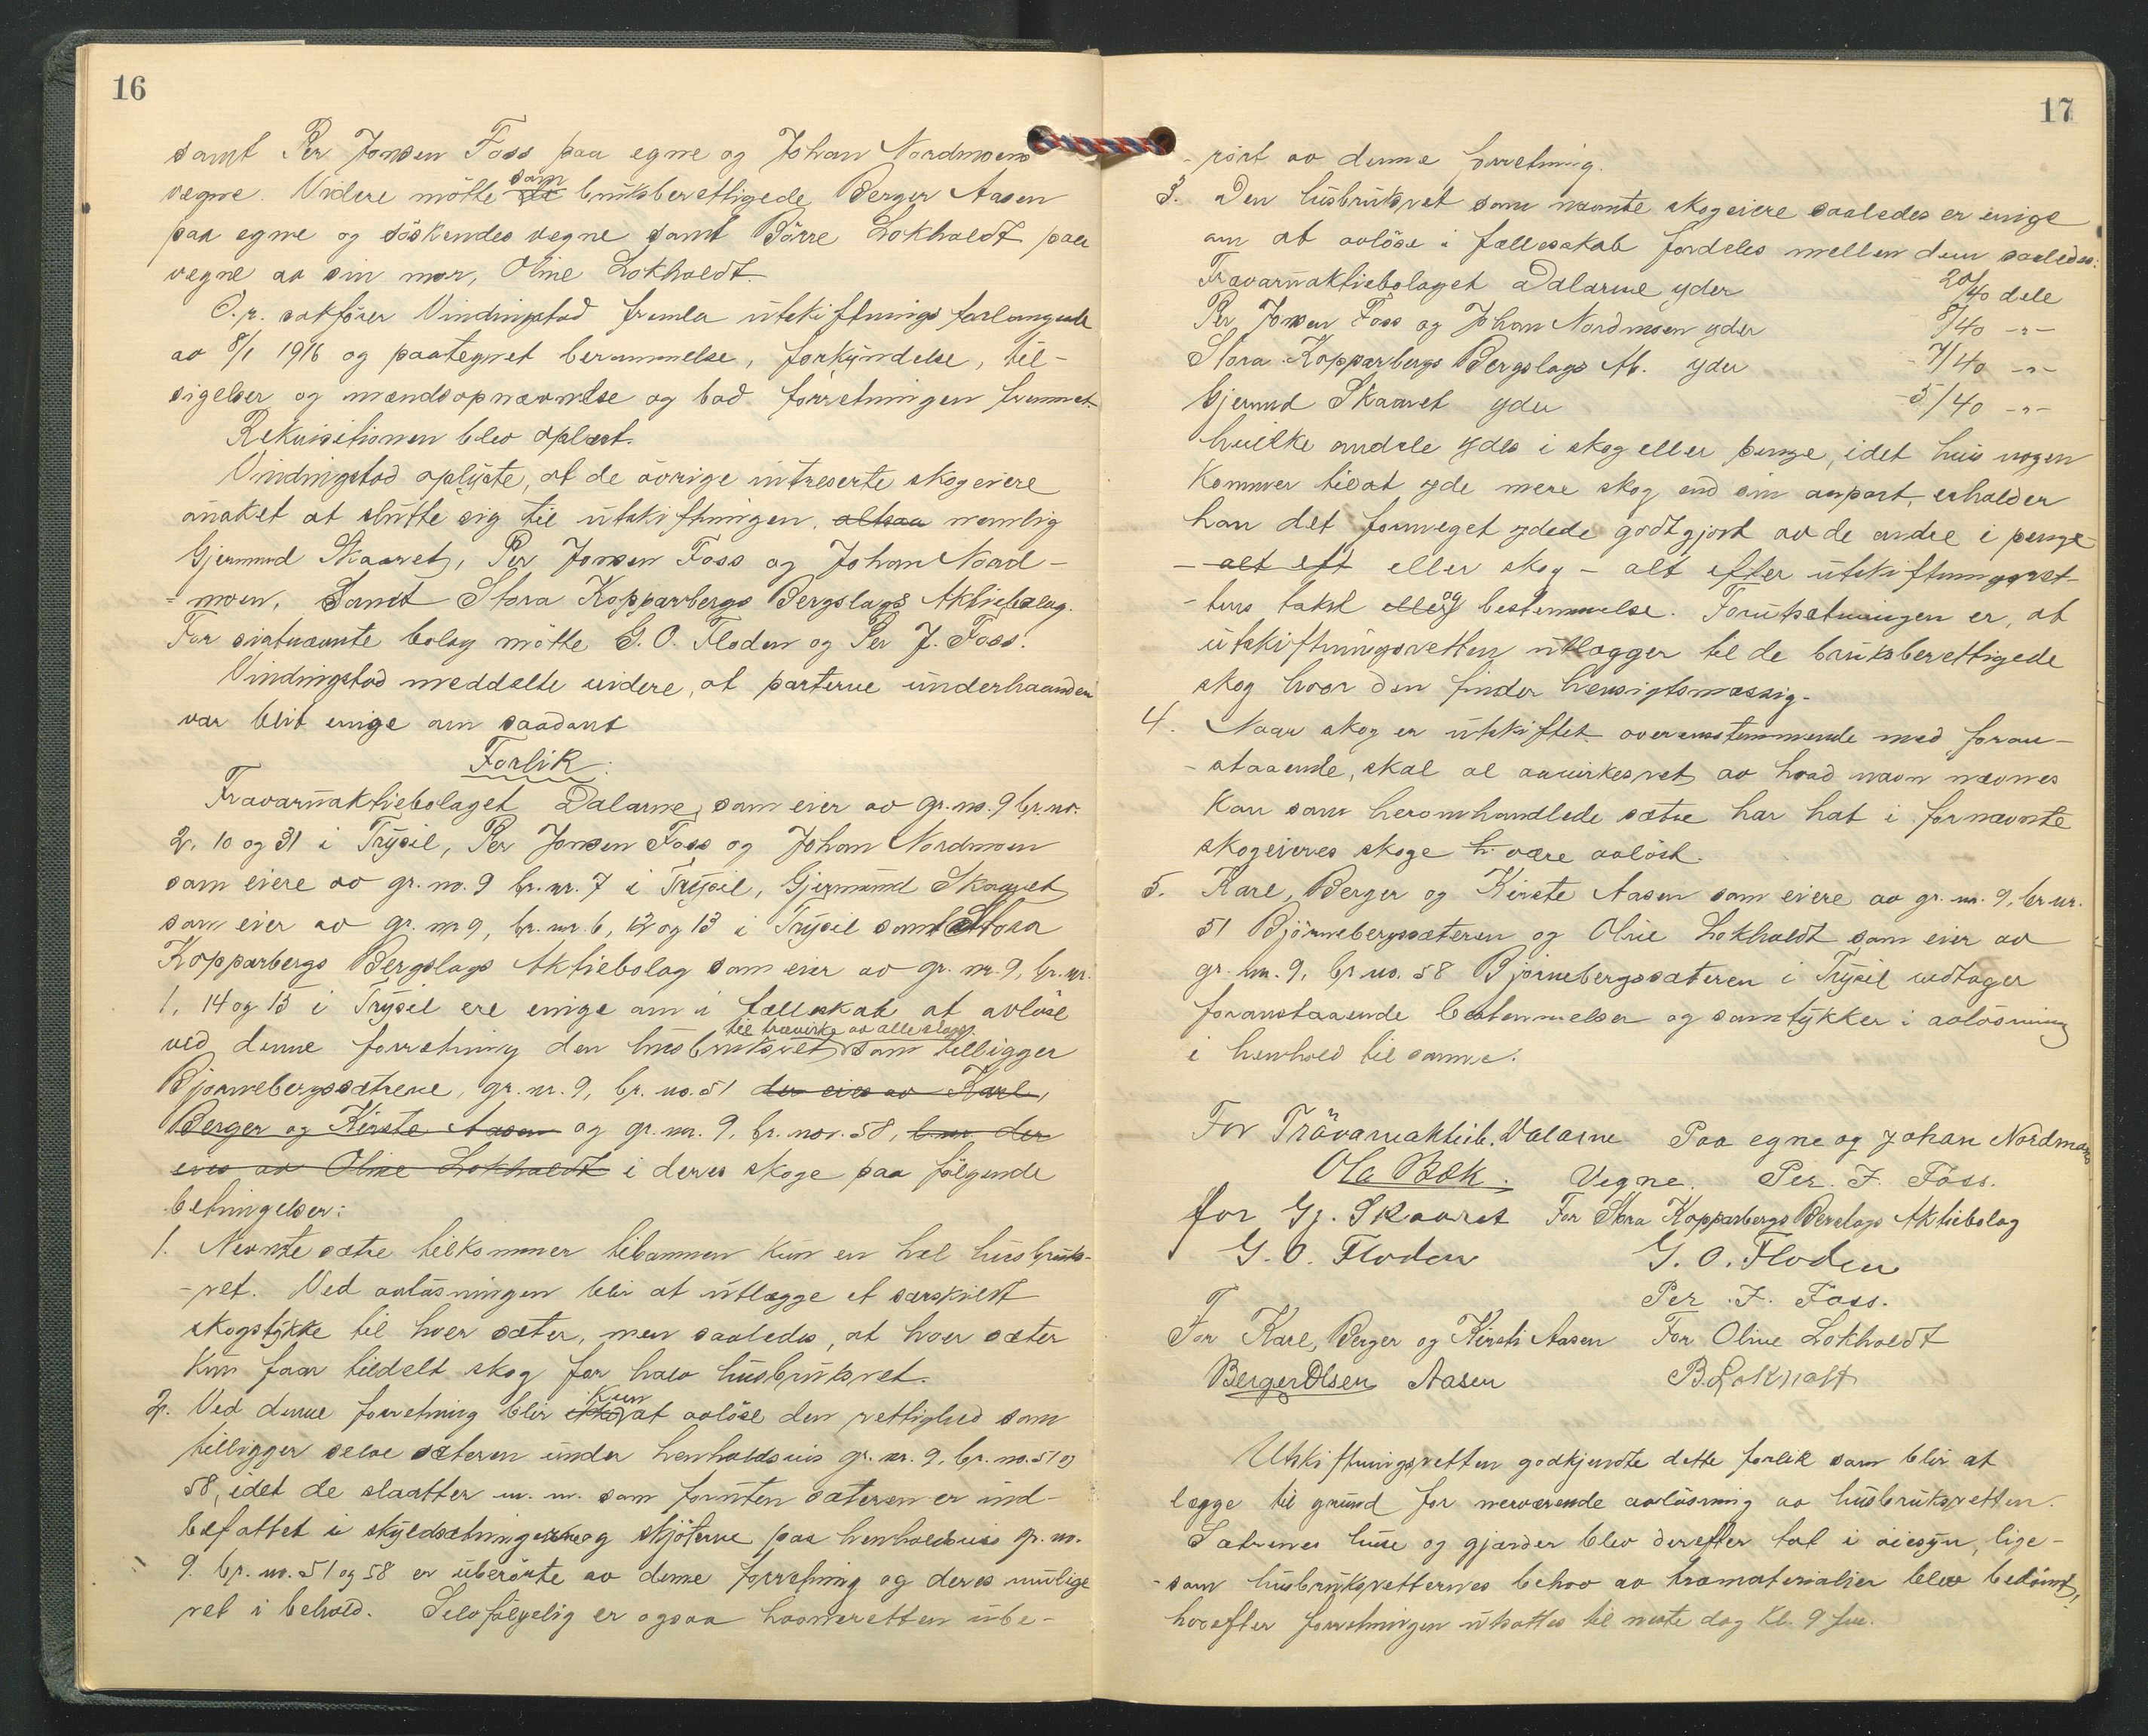 16
samt Per Jonsen Foss paa egne og Johan Nordmoens
vegne. Videre mötte som de bruksberettigede Berger Aasen
paa egne og söskendes vegne samt Börre Lokholdt paa
vegne av sin mor, Oline Lokholdt.
O.r. sakförer Vindingstad fremla utskiftningsforlangende
av 8/1 1916 og paategnet berammelse, forkyndelse, til-
sigelser og mændsopnævnelse og bad forretningen fremmet.
Rekvisitionen blev oplæst.
Vindingstad oplyste, at de övrige intreserte skogeiere
önsket at slutte sig til utskiftningen, altsaa nemlig
Gjermund Skaaret, Per Jonsen Foss og Johan Nord-
-moen, Samt Stora Kopparbergs Bergslags Aktiebolag.
For sistnævnte bolag mötte G. O. Floden og Per J. Foss.
Vindingstad meddelte videre, at parterne underhaanden
var blit enige om saadant
Forlik:
Travaruaktiebolaget Dalarne, som eier av gr. no. 9 br. nr.
2, 10 og 31 i Trysil, Per Jonsen Foss og Johan Nordmoen
som eiere av gr. no. 9 br. nr. 7 i Trysil, Gjermund Skaaret
som eier av gr. nr 9, br. nr. 6, 12 og 13 i Trysil samt Stora
Kopparbergs Bergslags Aktiebolag som eier av gr. nr. 9, br. nr.
1, 14 og 15 i Trysil ere enige om i fællesskab at avlöse
ved denne forretning den husbruksret til trævirke av alle slags som tilligger
Bjørnebergssætrene, gr. nr. 9, br. no. 51 der eies av Karl,
Berger og Kirste Aasen og gr. nr. 9, br. nor. 58, der
eies av Oline Lokholdt i deres skoge paa fölgende
betingelser:
1. Nevnte sætre tilkommer tilsammen kun en hel husbruks-
-ret. Ved avlösningen blir at utlægge et særskildt
skogstykke til hver sæter, men saaledes, at hver sæter
kun faar tildelt skog for halv husbruksret.
2. Ved denne forretning blir ikke kun at avlöse den rettighed som
tilligger selve sæteren under henholdsvis gr. nr. 9. br. no. 51 og
58, idet de slaatter m. m. som foruten sæteren er ind-
befattet i skyldsætningerne og skjöterne paa henholdsvis gr. no.
9. br. no. 51 og 58 er uberörte av denne forretning og deres mulige
ret i behold. Selvfölgelig er ogsaa havneretten ube-
17
-rört av denne forretning.
3. Den husbruksret som nævnte skogeiere saaledes er enige
om at avlöse i fællesskab fordeles mellem dem saaledes:
Travaruaktiebolaget Dalarne yder 20/40 dele
Per Jonsen Foss og Johan Nordmoen yder 8/40 -"-
Stora Kopparbergs Bergslags Ab. yder 7/40 -"-
Gjermund Skaaret yder 5/40 -"-
hvilke andele ydes i skog eller penge, idet hvis nogen
kommer til at yde mere skog end sin anpart, erholder
han det formeget ydede godtgjort av de andre i penge
- alt eft eller skog - alt efter utskiftningsret-
-tens takst eller og bestemmelse. Forutsætningen er, at
utskiftningsretten utlægger til de bruksberettigede
skog hvor den finder hensigtsmæssig.
4. Naar skog er utskiftet overensstemmende med foran-
-staaende, skal al avvirkesret av hvad navn nævnes
kan som heromhandlede sætre har hat i fornævnte
skogeieres skoge h. være avlöst.
5. Karl, Berger og Kirste Aasen som eiere av gr. no. 9, br. nr.
51 Björnebergssæteren og Oline Lokholdt som eier av
gr. nr. 9, br. no. 58 Björnebergssæteren i Trysil vedtager
foranstaaende bestemmelser og samtykker i avlösning
i henhold til samme.
For Trävaruaktieb. Dalarne Paa egne og Johan Nordmoens
Ola Bæk. Vegne. Per. J. Foss.
for Gj. Skaaret For Stora Kopparbergs Berslags Aktiebolag
G. O. Floden G. O. Floden
Per. J. Foss.
For Karl, Berger og Kirsti Aasen For Oline Lokholdt
Berger Olsen Aasen B. Lokholt
Utskiftningsretten godkjendte dette forlik som blir at
lægge til grund for nerværende avlösning av husbruksretten.
Sætrenes huse og gjærder blev derefter tat i öiesyn, lige-
-som husbruksretternes behov av træmaterialier blev bedömt,
hvorefter forretningen utsattes til neste dag kl. 9 fm.